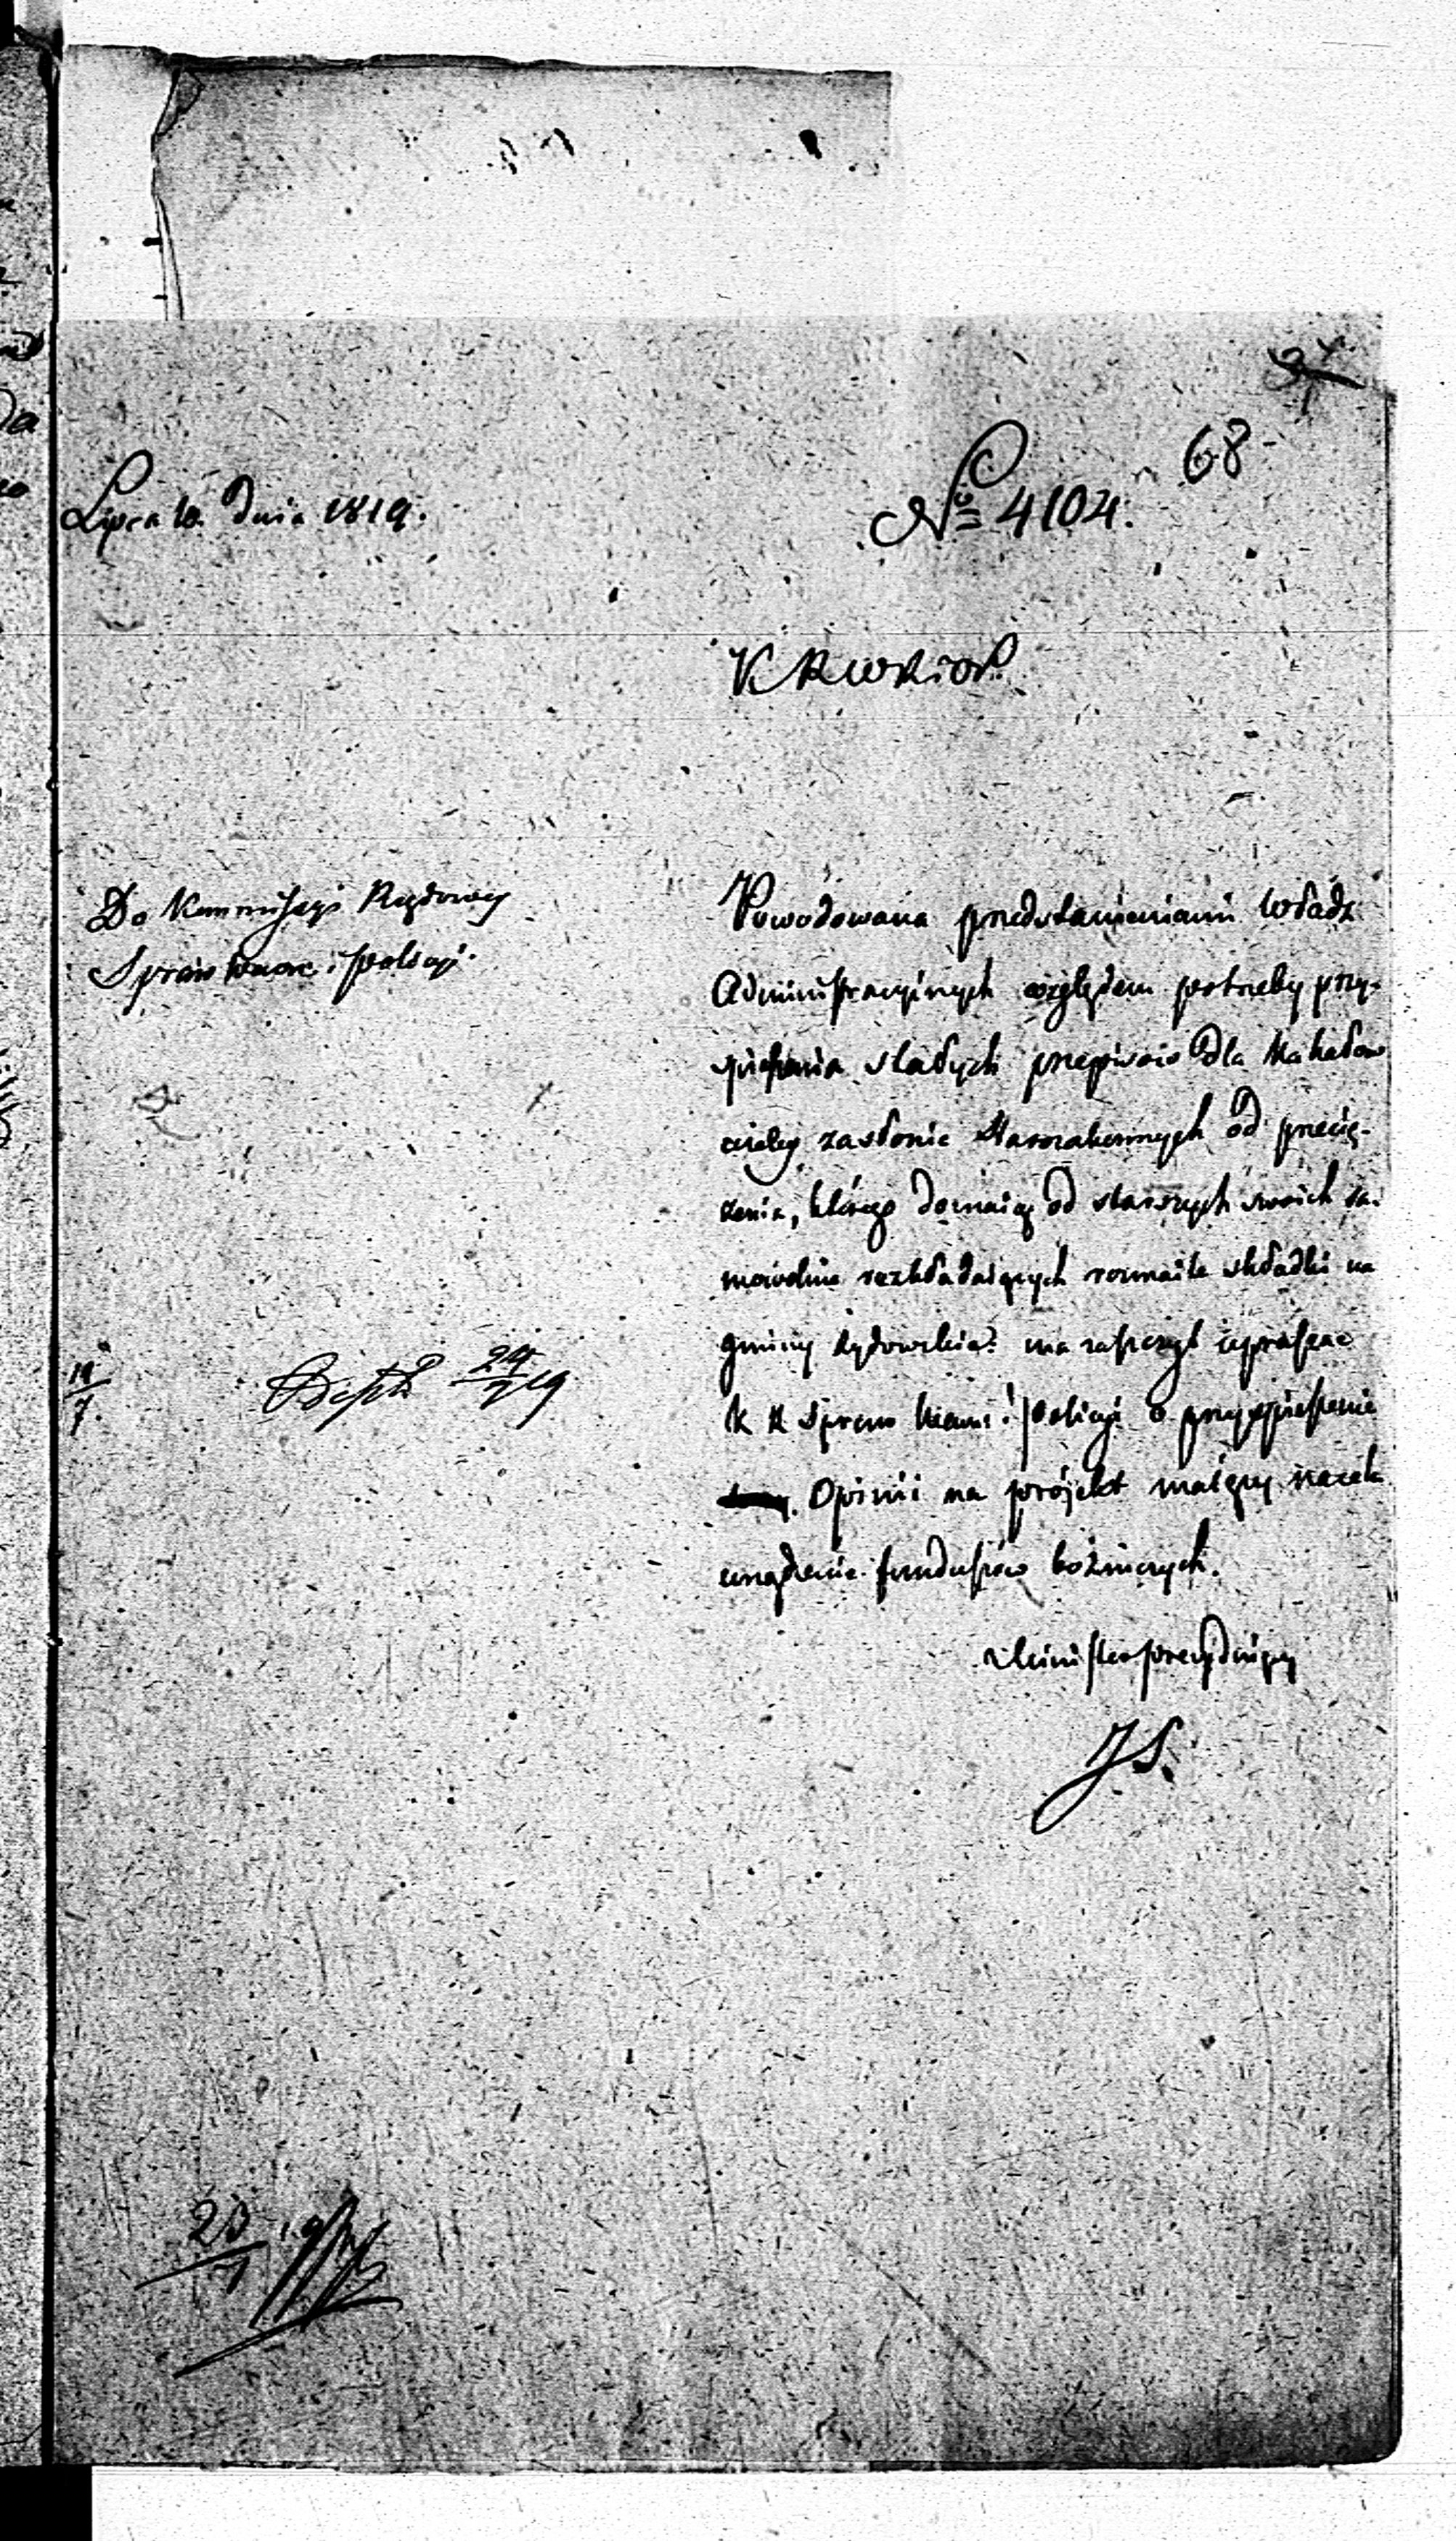 68
Lipca 10. dnia 1819.
No 4104.
K R W R i O P
Do Kommissyi Rządowey
Spraw Wewn: i Policyi.
Powodowana przedstawieniami Władz
Administracyinych względem potrzeby przy-
spieszenia stałych przepisów dla Kahałów
celey zasłonie Starozakonnych od precią-
żenia, którego doznaią od starszych swoich sa-
mowolnie rozkładaiących rozmaite składki na
gminy żydowskie: ma zaszczyt zaprosić
K R Spraw Wewn: i Policyi o przyspieszenie
Opinii na projekt maiący na celu
urządzenie funduszów bożniczych.
Minister prezyduiący
JS.
10
7.
Exped 24/7 19
20/7 19